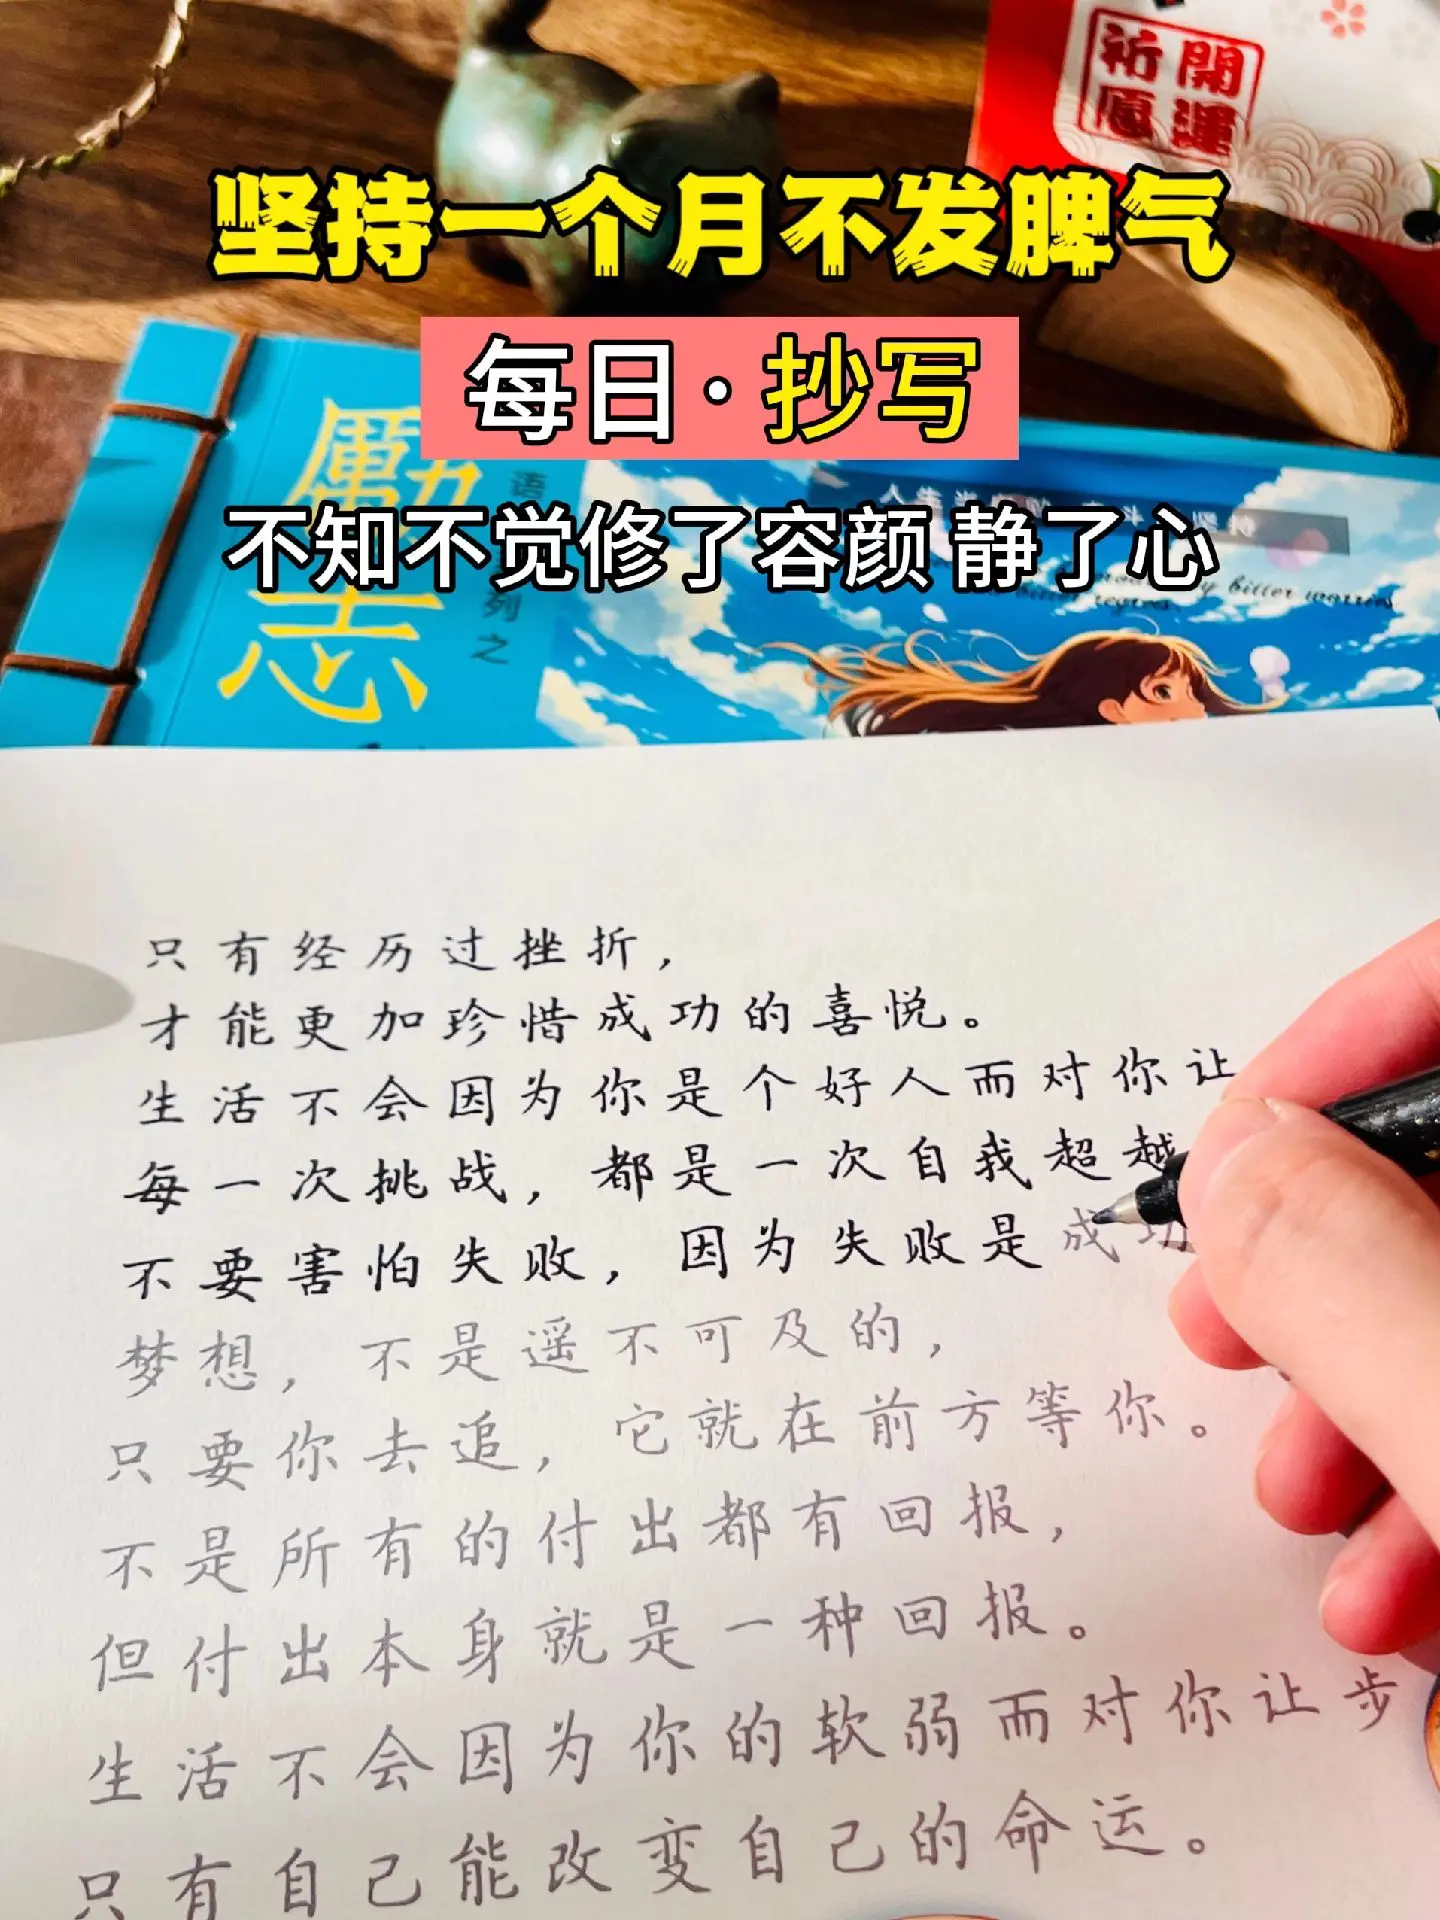 開運
祈愿
坚持一个月不发脾气
每日·抄写
不知不觉修了容颜 静了心
勵志
语
列之
bitter worries
只有经历过挫折，
才能更加珍惜成功的喜悦。
生活不会因为你是个好人而对你让
每一次挑战，都是一次自我超越
不要害怕失败，因为失败是成功
梦想，不是遥不可及的，
只要你去追，它就在前方等你。
不是所有的付出都有回报，
但付出本身就是一种回报。
生活不会因为你的软弱而对你让步
只有自己能改变自己的命运。